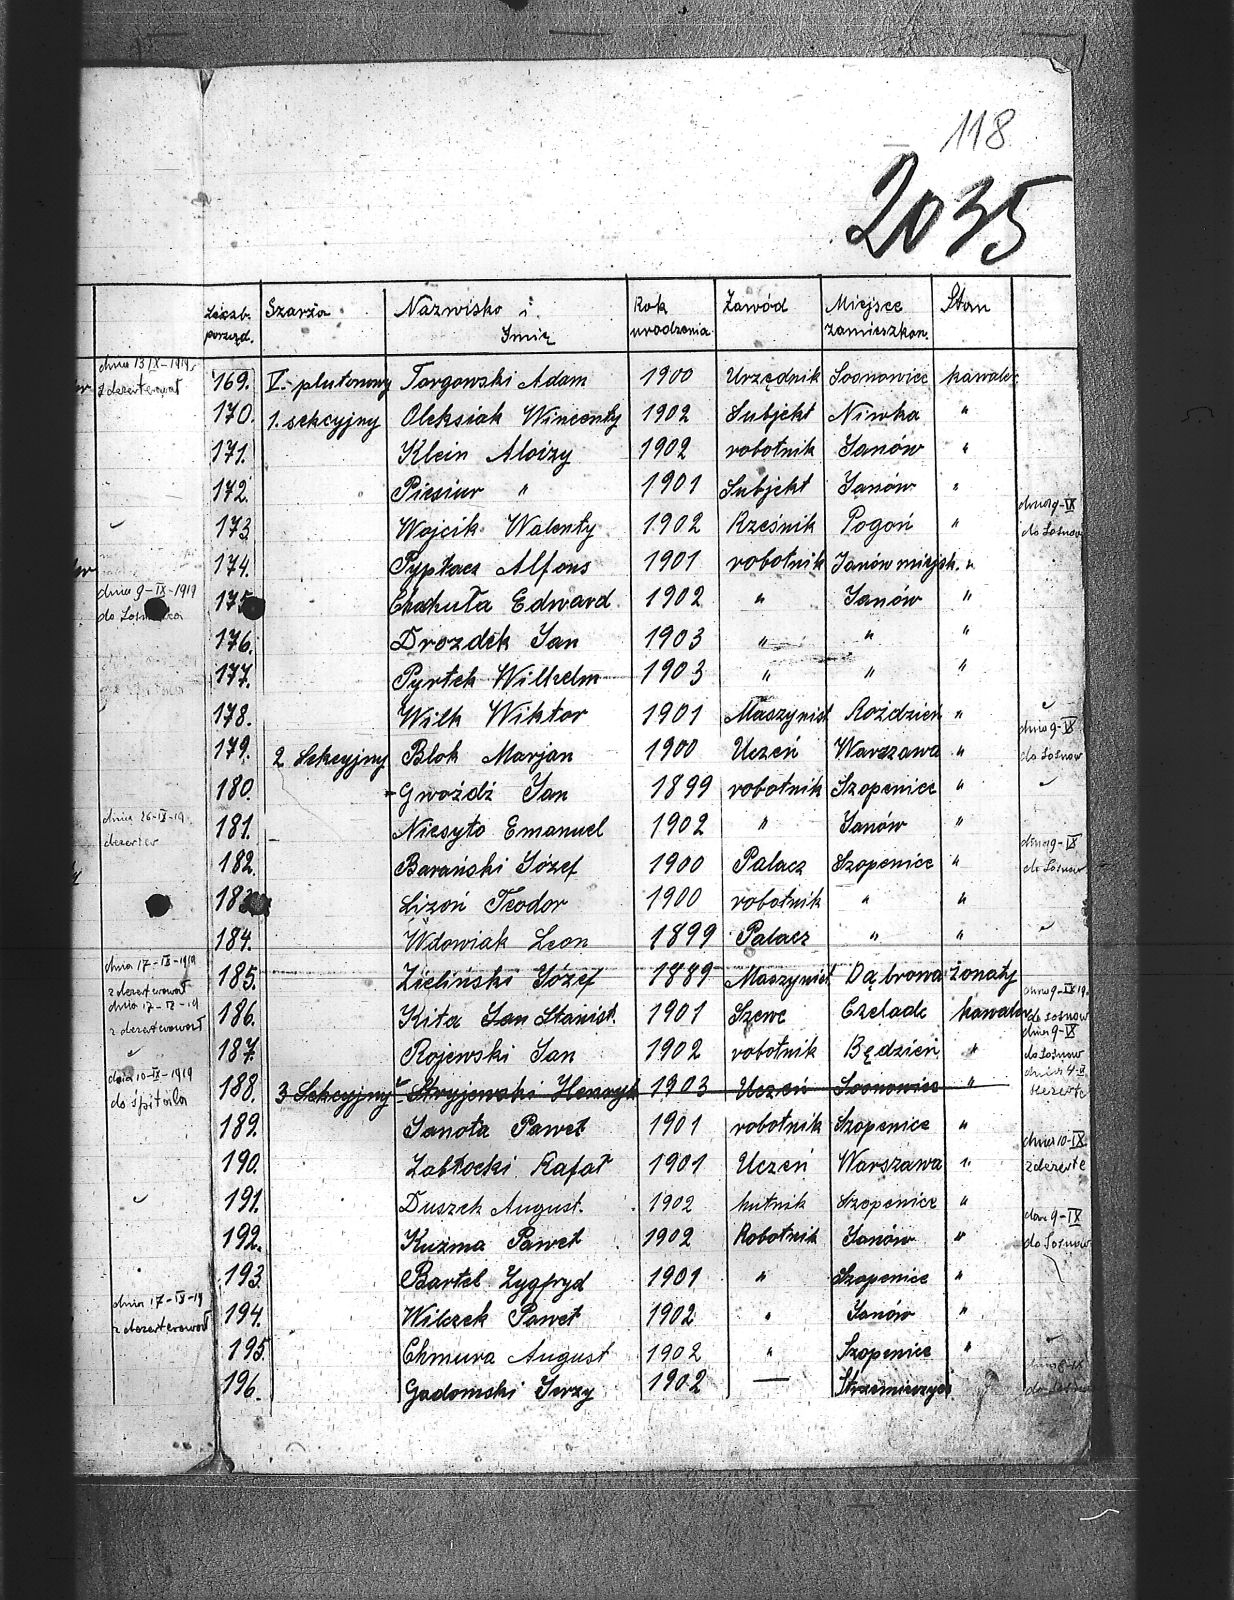 118
2035
Liczb. porząd. Szarża Nazwisko i Imię Rok urodzenia Zawód Miejsce zamieszkan. Stan
dnia 13 IX-1919 r.
zdezerterował
169. V. plutonowy Targowski Adam 1900 Urzędnik Sosnowiec kawaler
170. 1. sekcyjny Oleksiak Wincenty 1902 Subjekt Niwka "
171. Klein Aloizy 1902 robotnik Janów "
172. Piesiur " 1901 Subjekt Janów "
173. Wojcik Walenty 1902 Rześnik Pogoń " dnia 9-IX do Sosnow
174. Pypłacz Alfons 1901 robotnik Janów miejsk. "
dnia 9-IX-1919
175. Edward 1902 " Janów "
176. Drozdek Jan 1903 " " "
177. Pyrtek Wilhelm 1903 " " "
178. Wilk Wiktor 1901 Maszynist Roździeń "
179. 2 Sekcyjny Blok Marjan 1900 Uczeń Warszawa " dnia 9-IX do Sosnow
180. Gwoźdź Jan 1899 robotnik Szopenice "
dnia 26-IX-19
dezerter
181. Niesyto Emanuel 1902 " Janów "
182. Barański Józef 1900 Palacz Szopenice " dnia 9-IX do Sosnow
183. Lizoń Teodor 1900 robotnik " "
184. Wdowiak Leon 1899 Palacz " "
dnia 17-IX-1919
zdezerterował
185. Zieliński Józef 1889 Maszynist Dąbrowa żonaty
dnia 17-IX-19
zdezerterował
186. Kita Jan Stanist. 1901 Szewc Czeladź kawaler dnia 9-IX 19 do Sosnow
187. Rojewski Jan 1902 robotnik Będzień " dnia 9-IX do Sosnow
dnia 10-IX-1919
do śpitala
188. 3 Sekcyjny Stryjewski Henryk 1903 Uczeń Sosnowiec "
189. Janota Paweł 1901 robotnik Szopenice "
190. Zabłocki Rafał 1901 Uczeń Warszawa " dnia 10-IX zdezerte
191. Duszek August. 1902 hutnik Szopenice "
192. Kuzma Paweł 1902 Robotnik Janów " 9-IX do Sosnow
193. Bartel Zygfryd 1901 " Szopenice "
dnia 17-IX-19
zdezerterował
194. Wilczek Paweł 1902 " Janów "
195. Chmura August 1902 " Szopenice "
196. Gadomski Jerzy 1902 — Strzemieszyce